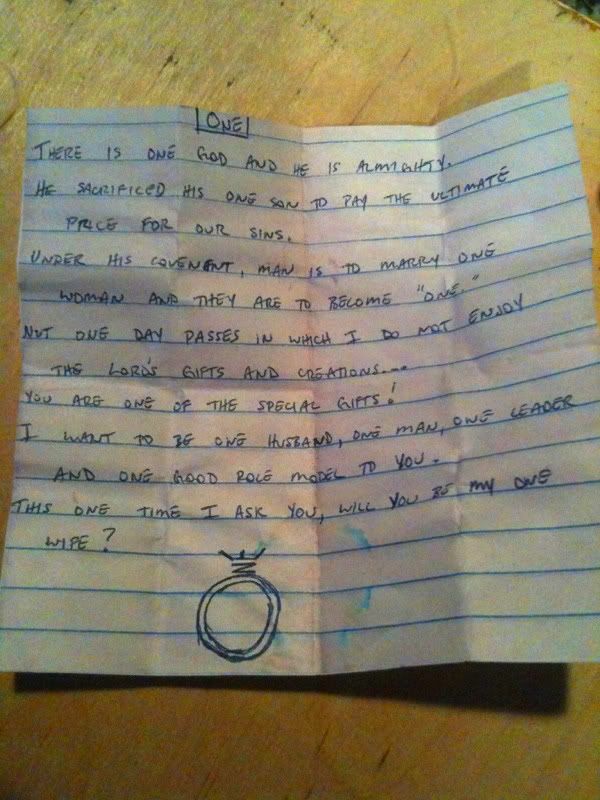 ONE
THERE IS ONE GOD AND HE IS ALMIGHTY.
HE SACRIFICED HIS ONE SON TO PAY THE ULTIMATE
PRICE FOR OUR SINS.
UNDER HIS COVENENT, MAN IS TO MARRY ONE
WOMAN AND THEY ARE TO BECOME "ONE."
NOT ONE DAY PASSES IN WHICH I DO NOT ENJOY
THE LORD'S GIFTS AND CREATIONS....
YOU ARE ONE OF THE SPECIAL GIFTS!
I WANT TO BE ONE HUSBAND, ONE MAN, ONE LEADER
AND ONE GOOD ROLE MODEL TO YOU.
THIS ONE TIME I ASK YOU, WILL YOU BE MY ONE
WIFE?